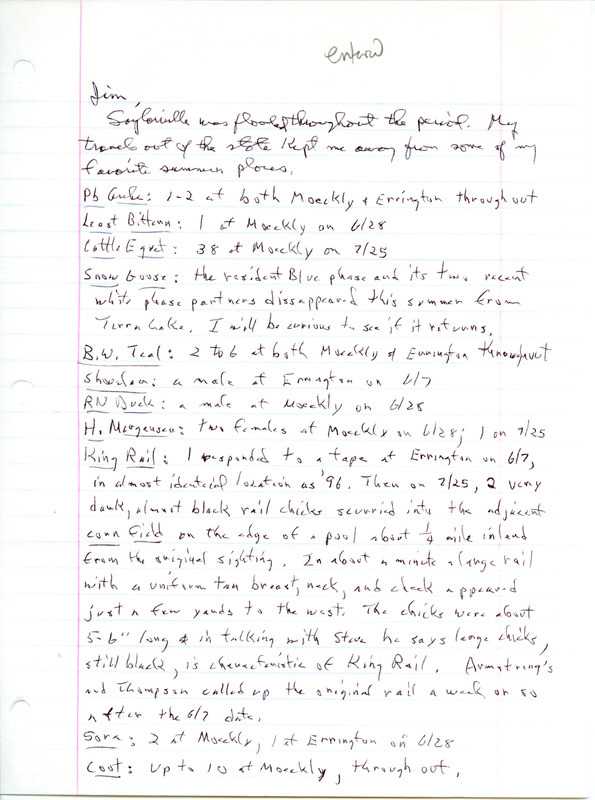 entered
Jim,
Saylorville was flooded throughout the period. My
travels out of the state kept me away from some of my
favorite summer places.
Pb Grebe: 1-2 at both Moeckly & Errington throughout
Least Bittern: 1 at Moeckly on 6/28
Cattle Egret: 38 at Moeckly on 7/25
Snow Goose: the resident Blue phase and its two recent
white phase partners dissappeared this summer from
Terra Lake. I will be curious to see if it returns.
B.W. Teal: 2 to 6 at both Moeckly & Errington throughout
Shoveler: a male at Errington on 6/7
RN Duck: a male at Moeckly on 6/28
H. Merganser: two females at Moeckly on 6/28; 1 on 7/25
King Rail: 1 responded to a tape at Errington on 6/7,
in almost identical location as '96. Then on 7/25, 2 very
dark, almost black rail chicks scurried into the adjacent
corn field on the edge of a pool about 1/4 mile inland
from the original sighting. In about a minute a large rail
with a uniform tan breast, neck, and cheek appeared
just a few yards to the west. The chicks were about
5-6" long & in talking with Steve he says large chicks,
still black, is characteristic of King Rail. Armstrong's
and Thompson called up the original rail a week or so
after the 6/7 date.
Sora: 2 at Moeckly, 1 at Errington on 6/28
Coot: up to 10 at Moeckly, through out.